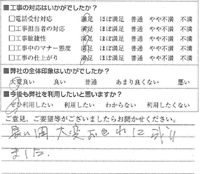 ■工事の対応はいかがでしたか?
□電話受付対応 満足 ほぼ満足 普通 やや不満 不満
□工事担当者の対応 満足 ほぼ満足 普通 やや不満 不満
□工事 満足 ほぼ満足 普通 やや不満 不満
□工事中のマナー態度 満足 ほぼ満足 普通 やや不満 不満
□工事の仕上がり 満足 ほぼ満足 普通 やや不満 不満
■弊社の全体印象はいかがですか?
大変良い 良い 普通 あまり良くない 悪い
■今後も弊社を利用したいと思いますか?
利用したい 利用したい わからない 利用したくない
ご意見、ご要望等がございましたらお聞かせください。
長い間大変お世話に
ました